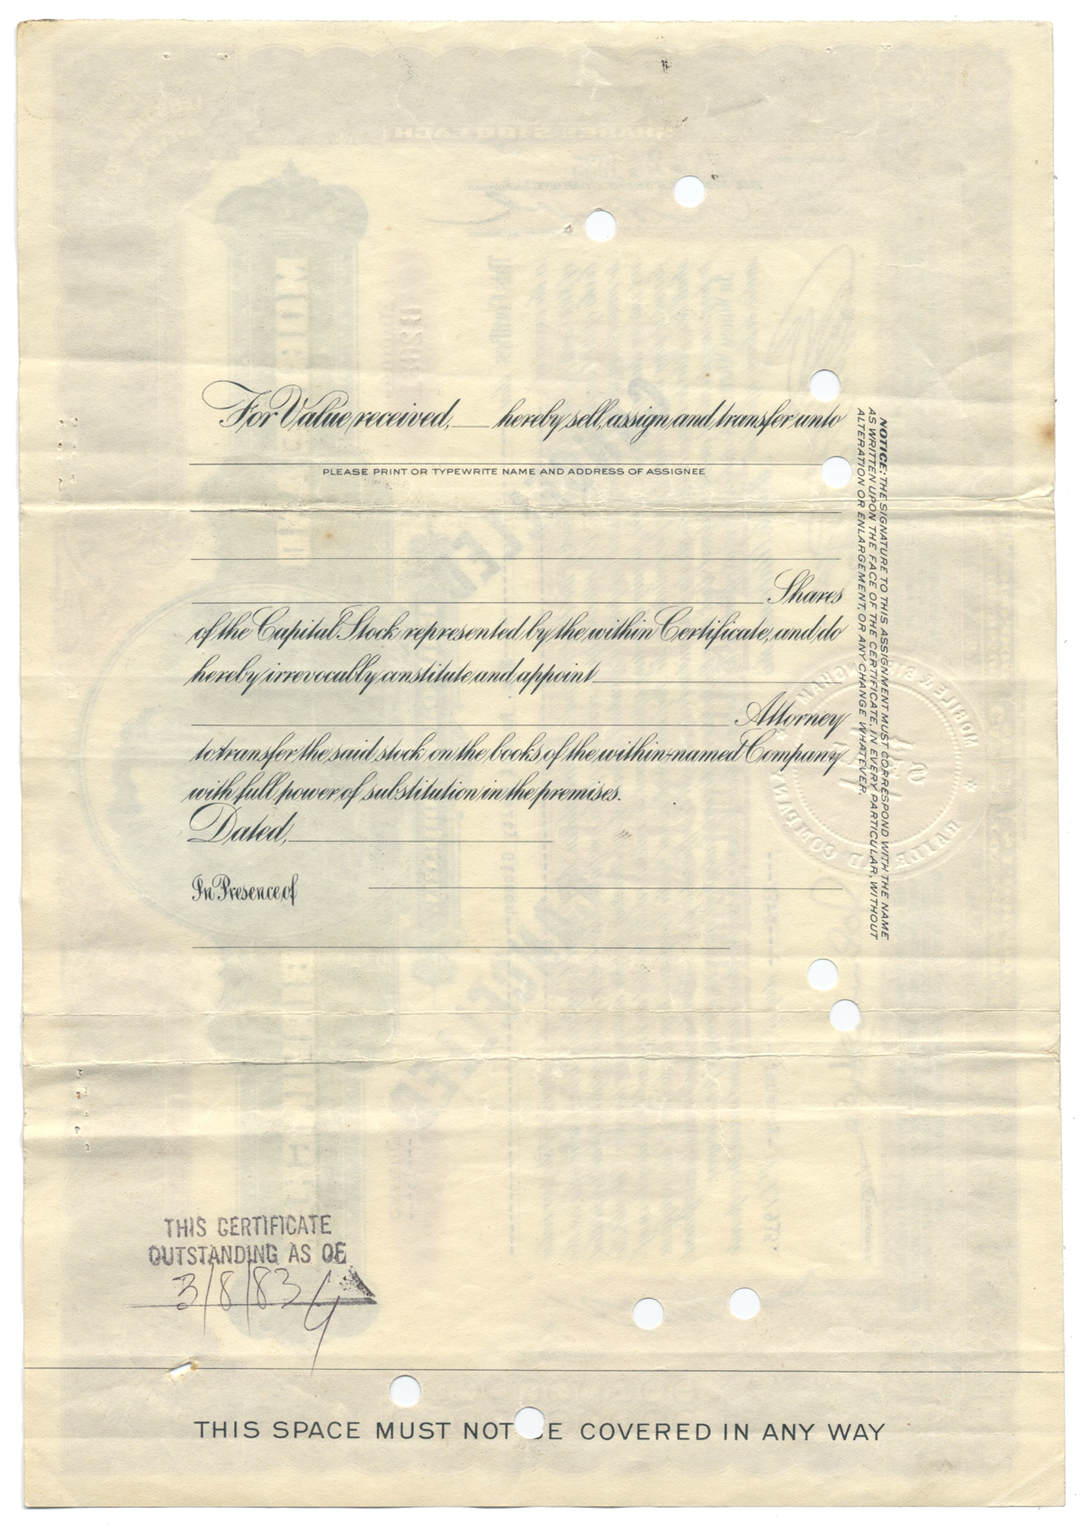 For Value received, ___ hereby sell, assign and transfer unto
PLEASE PRINT OR TYPEWRITE NAME AND ADDRESS OF ASSIGNEE
Shares
of the Capital Stock represented by the within Certificate, and do
hereby irrevocably constitute and appoint
Attorney
to transfer the said stock on the books of the within-named Company
with full power of substitution in the premises.
Dated,
In Presence of
NOTICE: THE SIGNATURE TO THIS ASSIGNMENT MUST CORRESPOND WITH THE NAME
AS WRITTEN UPON THE FACE OF THE CERTIFICATE, IN EVERY PARTICULAR, WITHOUT
ALTERATION OR ENLARGEMENT, OR ANY CHANGE WHATEVER.
MOBILE & BIRMINGHAM
RAILROAD COMPANY
CANCELLED
CANCELLED
THIS CERTIFICATE
OUTSTANDING AS OF
3/8/83
THIS SPACE MUST NOT BE COVERED IN ANY WAY